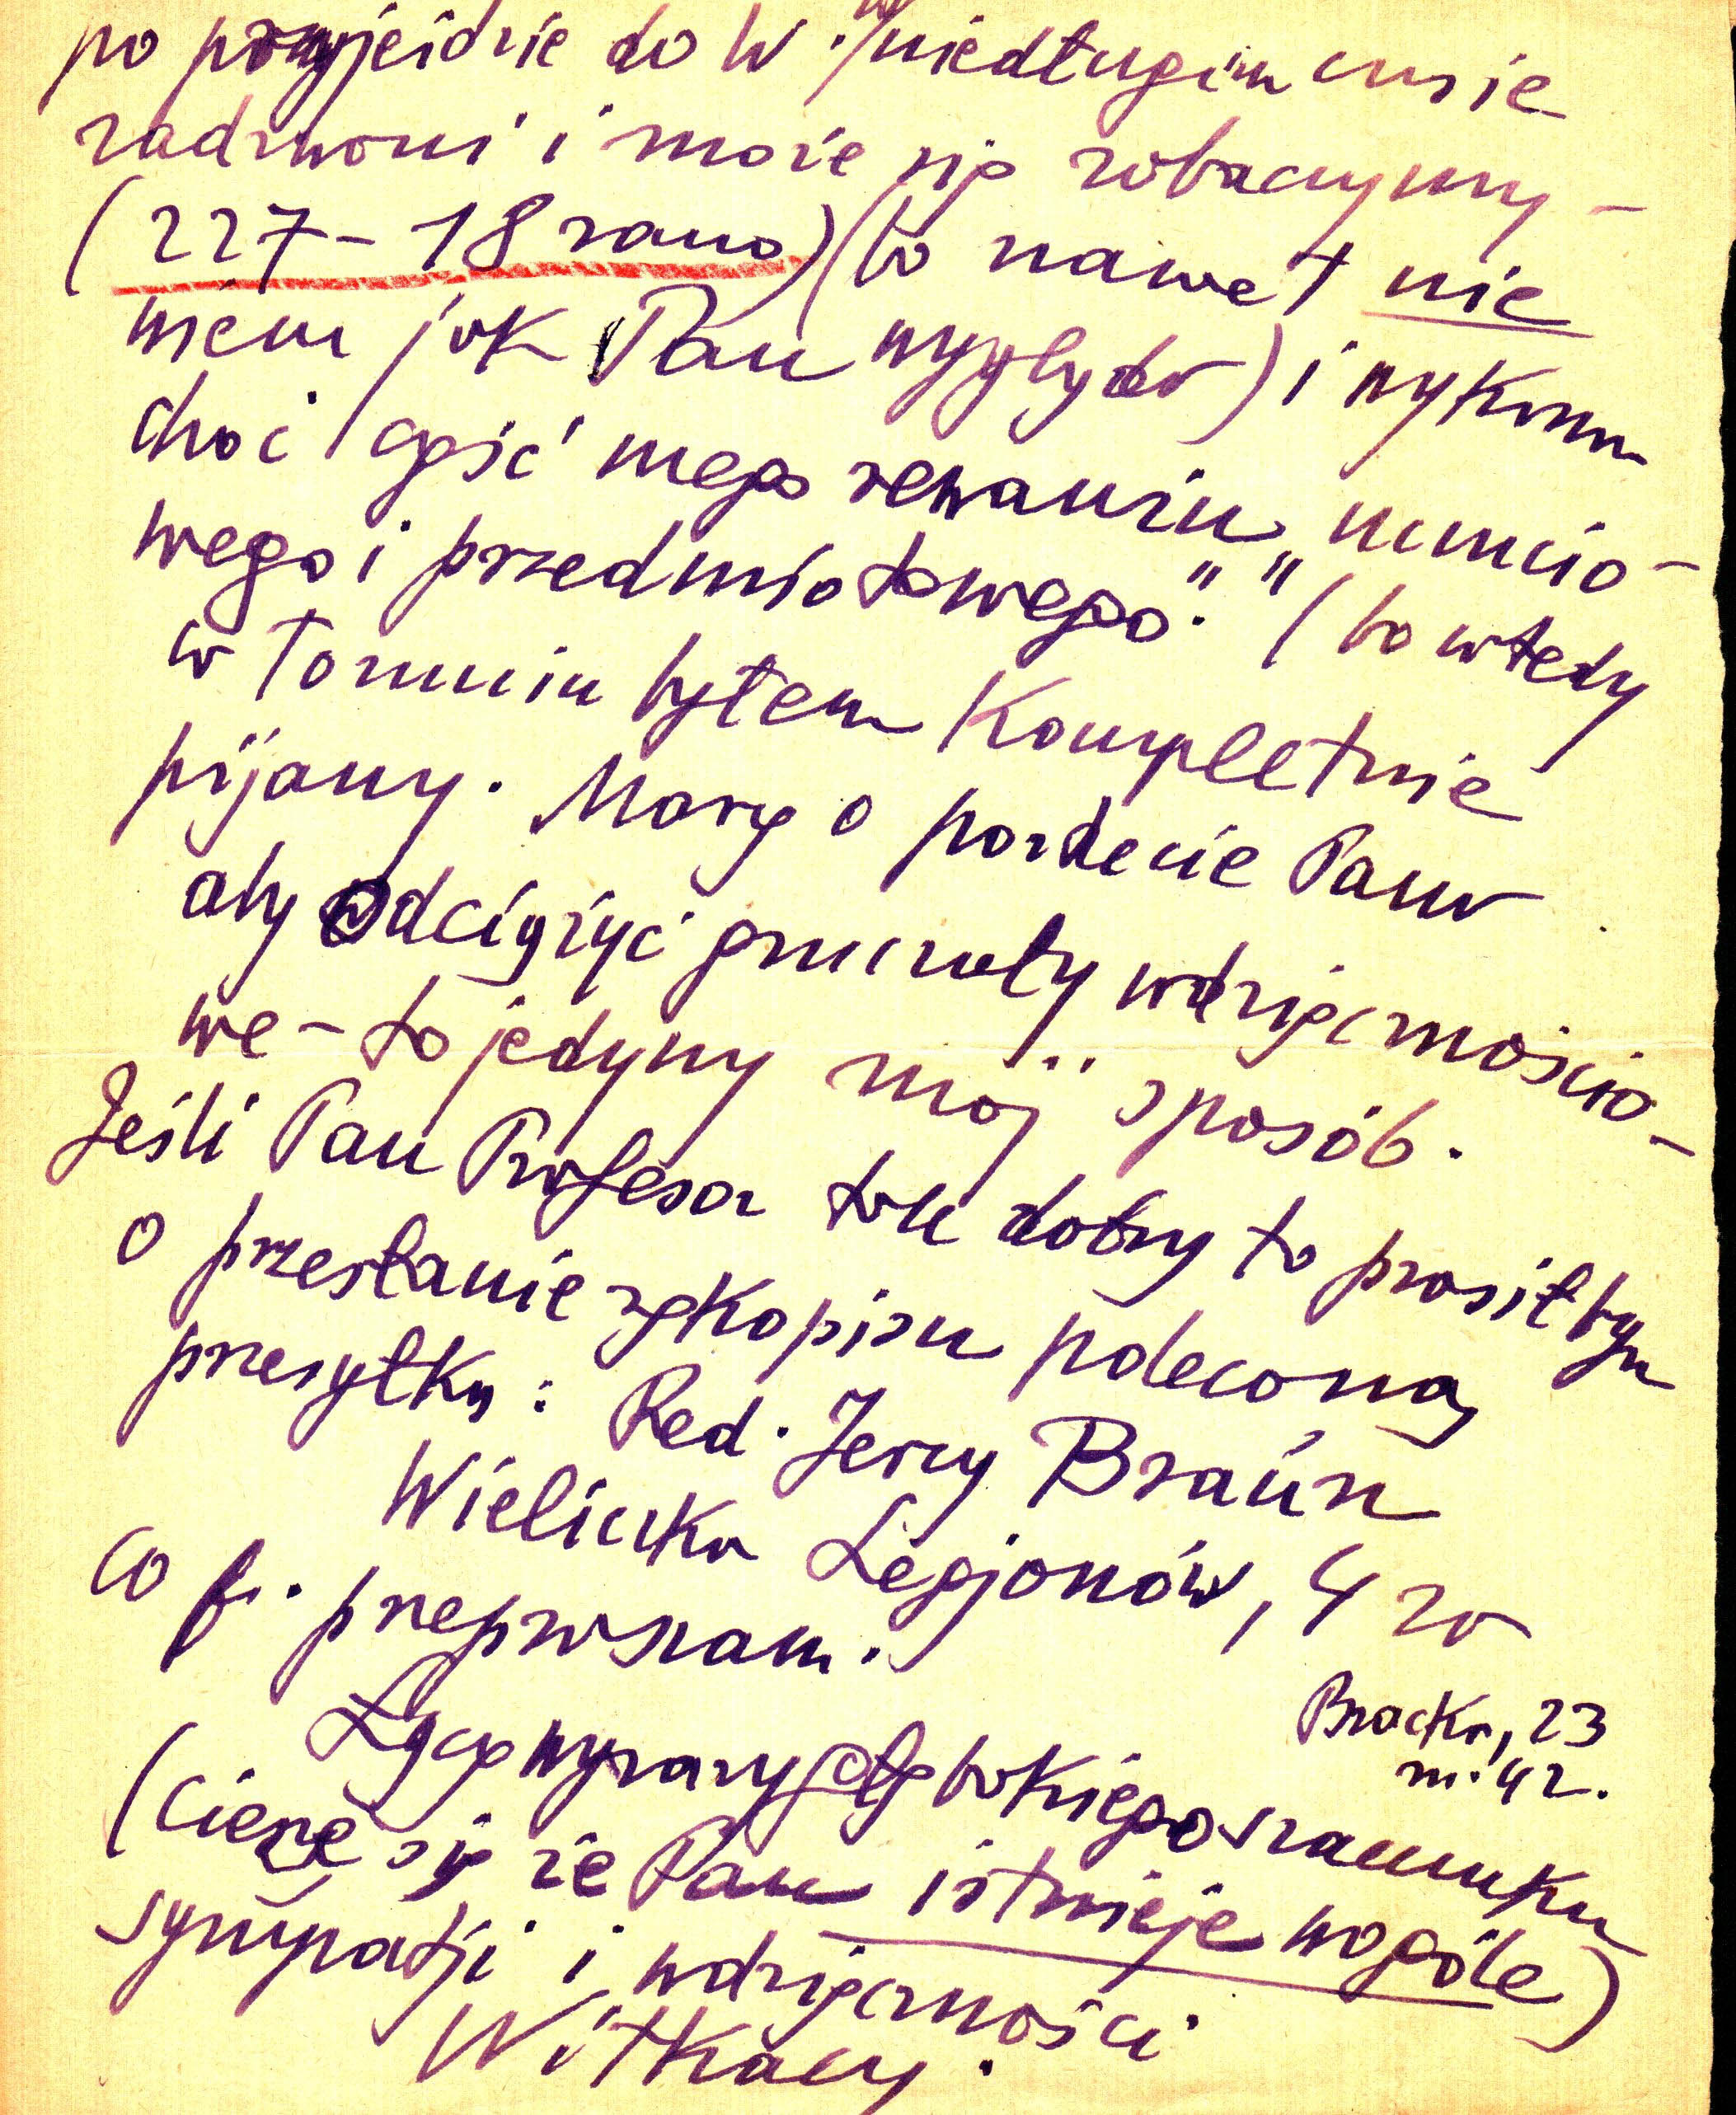 po przyjeździe do W. w niedługim czasie
zadzwoni i może się zobaczymy –
(227 – 18 rano) (bo nawet nie
wiem jak Pan wygląda) i wykonam
choć część mego rewanżu „uczucio-
wego i przedmiotowego". (bo wtedy
w Toruniu byłem kompletnie
pijany. Marzę o portrecie Pana
aby odciążyć gruczoły wdzięcznościo-
we – to jedyny mój sposób.
Jeśli Pan Profesor tak dobry to prosiłbym
o przesłanie rękopisu poleconą
przesyłką: Red. Jerzy Braun
Wieliczka Legjonów, 4 za
co b. przepraszam.
Bracka, 23
m. 42.
Łączę wyrazy głębokiego szacunku
(cieszę się że Pan istnieje wogóle)
sympatji i wdzięczności
Witkacy.